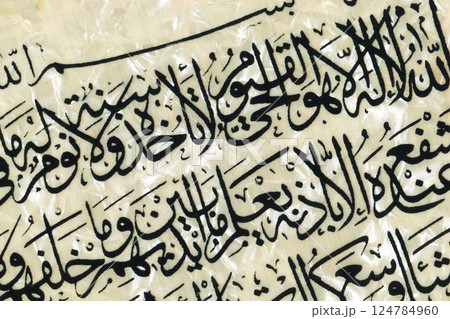 بسم الله
الله لا إله إلا هو الحي القيوم لا تأخذه سنة ولا نوم له ما في
يشفع عنده إلا بإذنه يعلم ما بين أيديهم وما خلفهم و
شاء وسع
124784960